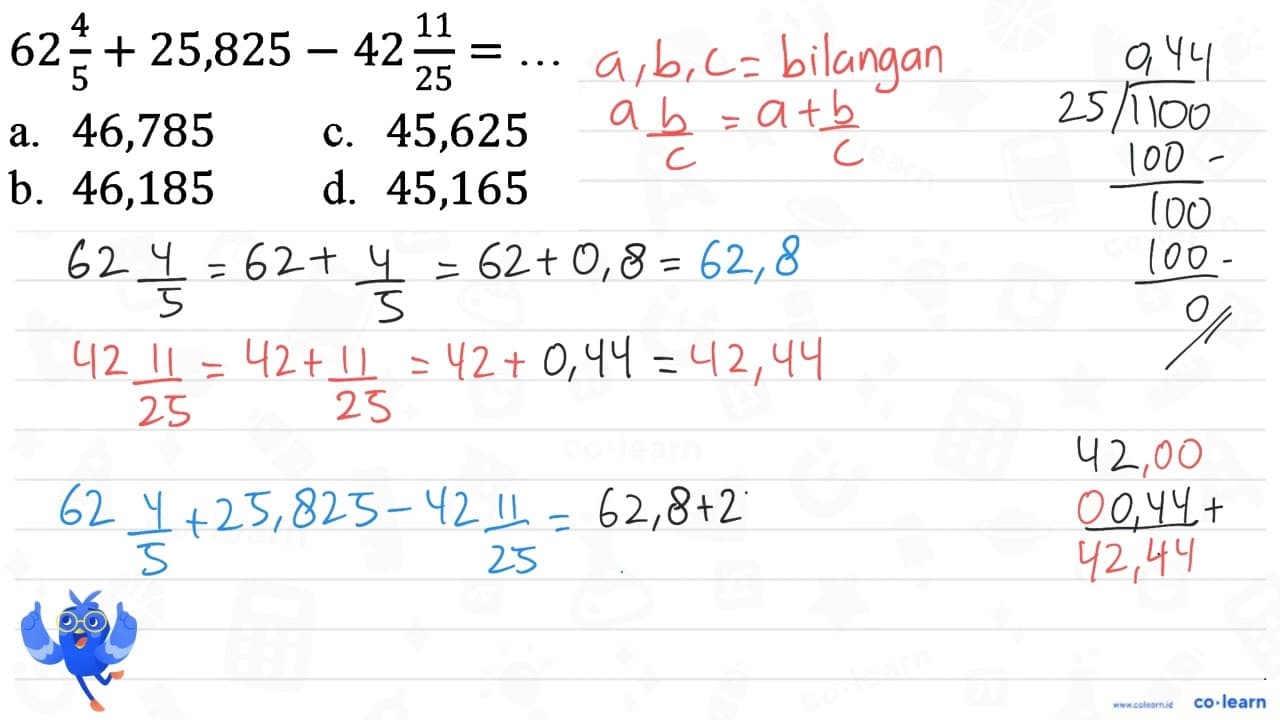 62 4/5 + 25,825 − 42 11/25 = ...
a. 46,785 c. 45,625
b. 46,185 d. 45,165
a, b, c = bilangan
a b/c = a + b/c
0,44
25/1100
100 -
100
100 -
0
62 4/5 = 62 + 4/5 = 62 + 0,8 = 62,8
42 11/25 = 42 + 11/25 = 42 + 0,44 = 42,44
42,00
00,44 +
42,44
62 4/5 + 25,825 − 42 11/25 = 62,8 + 2
co·learn
www.colearn.id co·learn